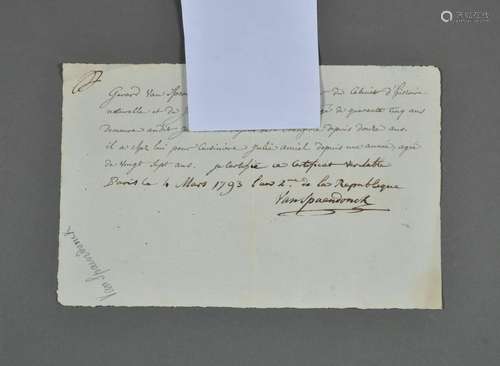 Gerard Van Spaen du Cabinet d'histoire
naturelle et de de quarante cinq ans
demeure au depuis douze ans.
il a chez lui pour Cuisiniere Julie amiel depuis une année, agée
de vingt Sept ans. je certifie ce Certificat veritable
Paris le 4 Mars 1793 l'an 2.me de la Republique
Van Spaendonck
Van Spaendonck